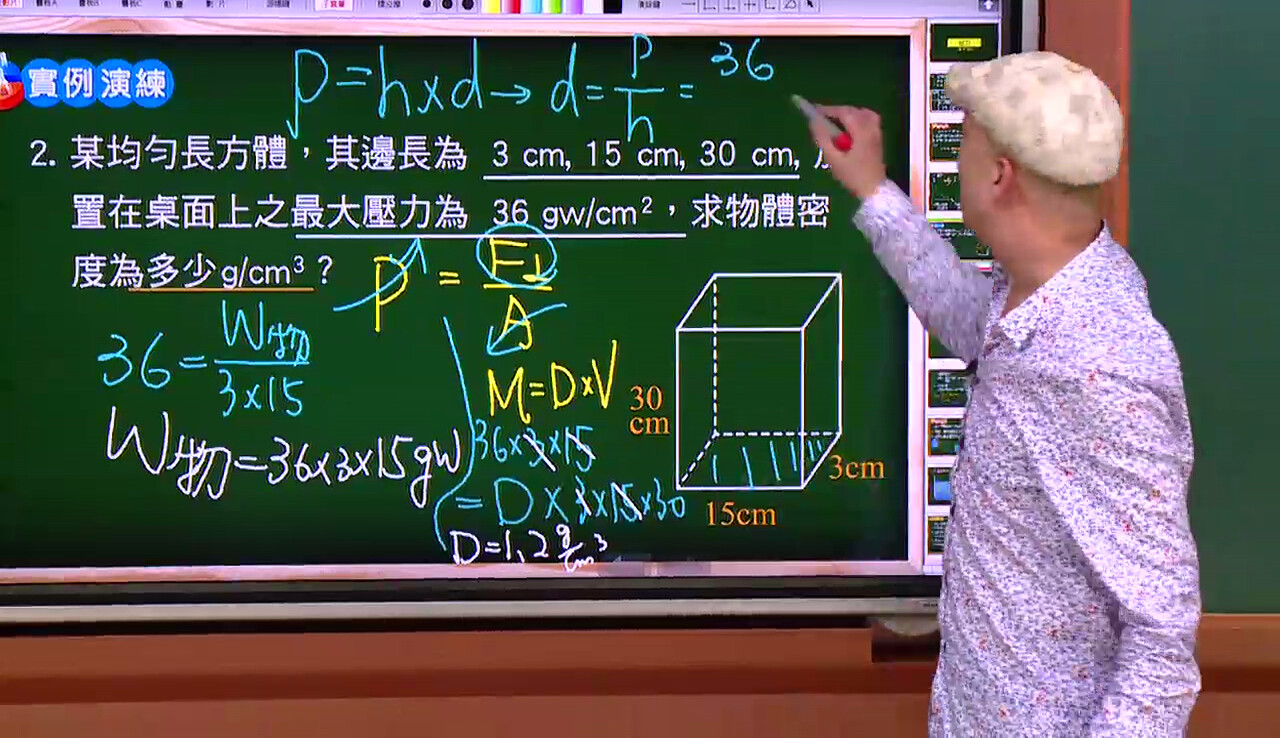 實例演練
P=h×d→d=P/h=36
2. 某均勻長方體，其邊長為 3 cm, 15 cm, 30 cm,
置在桌面上之最大壓力為 36 gw/cm²，求物體密
度為多少g/cm³？
P=F↓/A
36=W物/3×15
M=D×V
W物=36×3×15gw
36×3×15
=D×3×15×30
D=1.2 g/cm³
30
cm
3cm
15cm